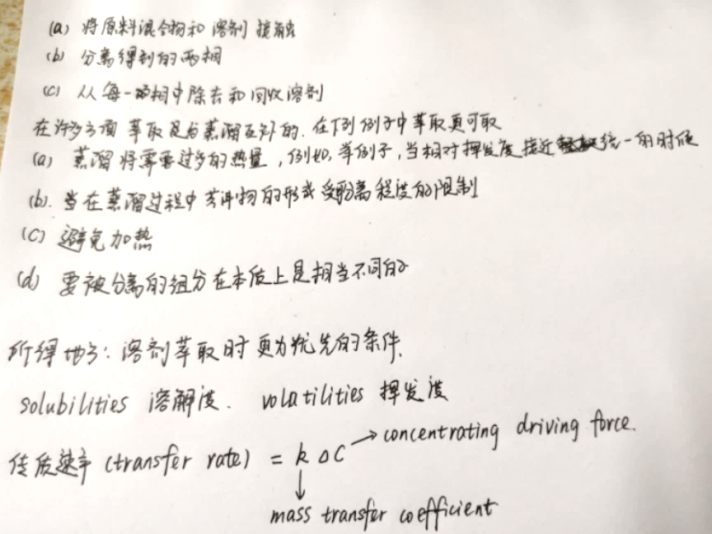 (a) 将原料混合物和溶剂接触
(b) 分离得到的两相
(c) 从每一相中除去和回收溶剂
在许多方面萃取是与蒸馏互补的.在下列例子中萃取更可取
(a) 蒸馏将需要过多的热量,例如,举例子,当相对挥发度接近统一的时候
(b). 当在蒸馏过程中共沸物的形式受分离程度的限制
(c) 避免加热
(d) 要被分离的组分在本质上是相当不同的
所得地方:溶剂萃取时更为优先的条件.
solubilities 溶解度. volatilities 挥发度
传质速率 (transfer rate) = k ΔC → concentrating driving force.
↓
mass transfer coefficient